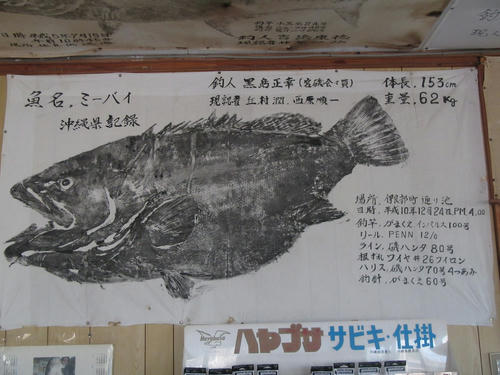 釣人 黒島正幸(宮磯会々員)
体長, 153cm
魚名, ミーバイ
現認者 丘村潤, 西原順一
重量, 62Kg
沖縄県記録
場所, 伊良部町 通り池
日時, 平成10年12月24日, P.M. 4.00
釣竿, がまくえ インパルス100号
リール, PENN 12/0
ライン, 磯ハンタ 80号
根ずれ ワイヤ #26 ワイロン
ハリス, 磯ハンタ70号 4つあみ
釣針, がまくえ60号
Hayabusa
ハヤブサ サビキ・仕掛